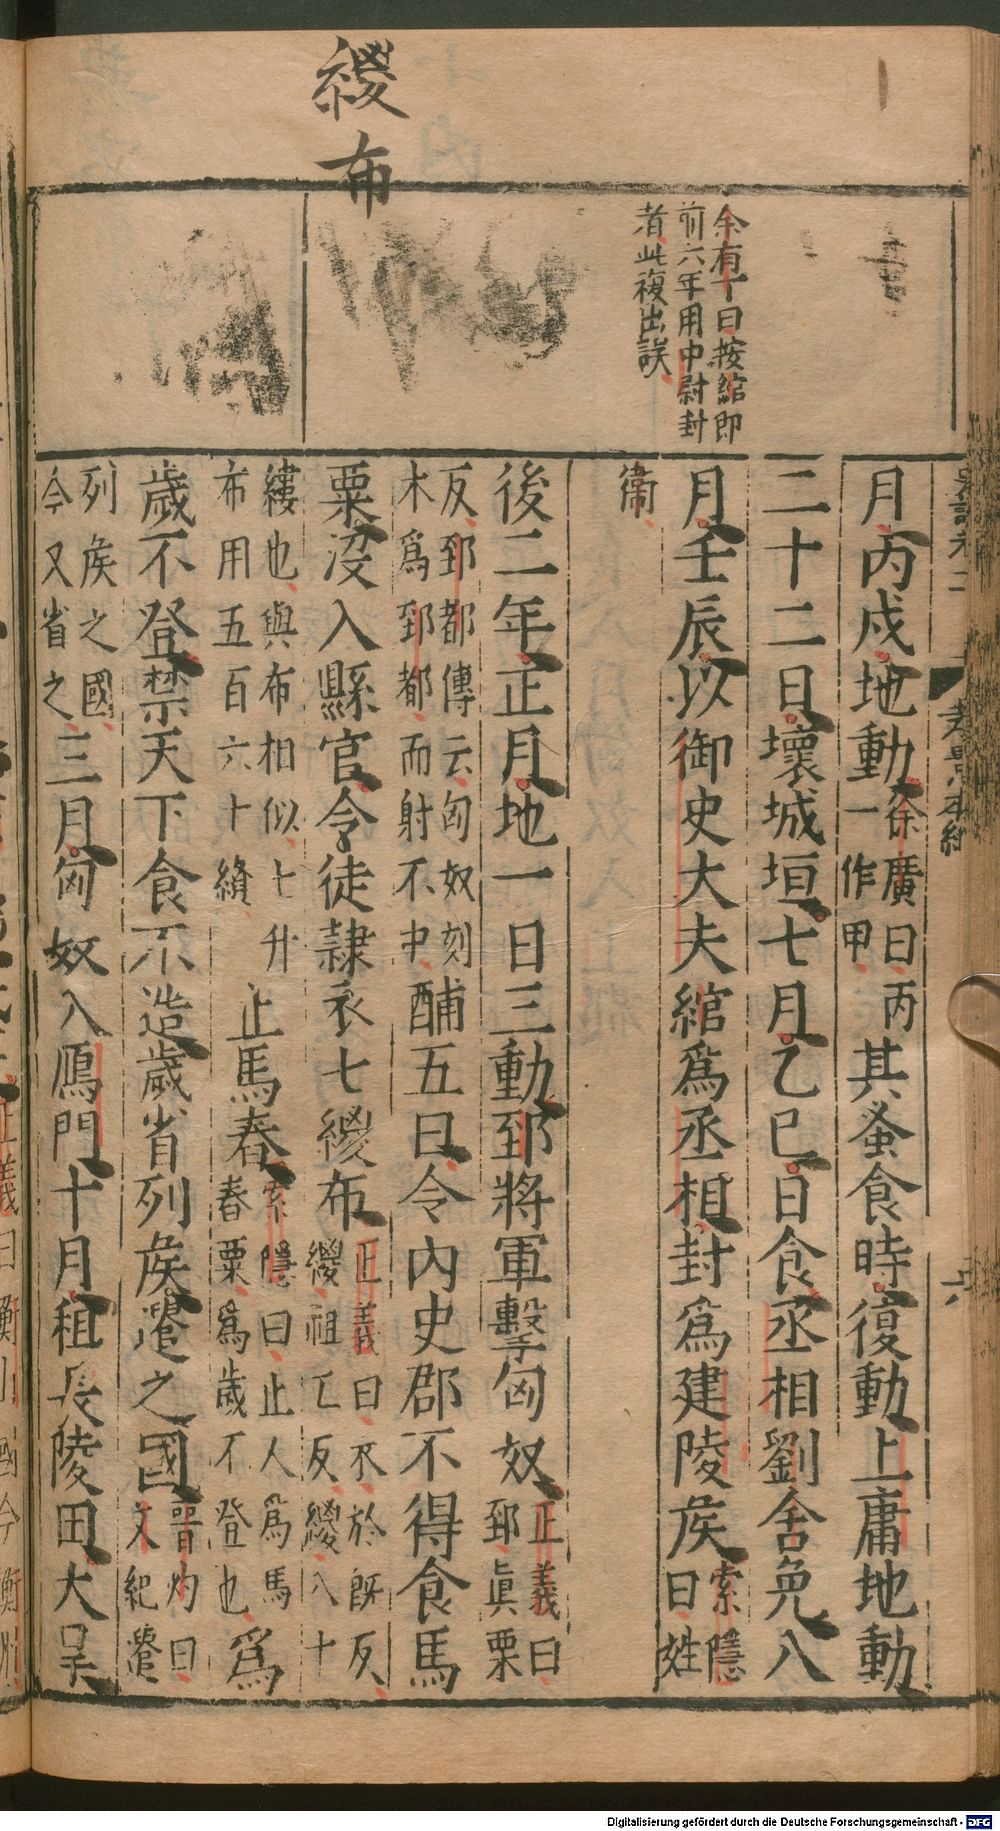 緵布
余有丁曰按綰卽
前六年用中尉封
者此複出誤
月丙戌地動徐廣曰丙
一作甲其蚤食時復動上庸地動
二十二日壞城垣七月乙巳日食丞相劉舍免八
月壬辰以御史大夫綰爲丞相封爲建陵矦索隱
曰姓
衛
後二年正月地一日三動郅將軍擊匈奴正義曰
郅眞栗
反郅都傳云匈奴刻
木爲郅都而射不中酺五日令內史郡不得食馬
粟沒入縣官令徒隷衣七緵布正義曰衣於旣反
緵祖工反緵八十
縷也與布相似七升
布用五百六十縷止馬舂索隱曰止人爲馬
舂粟爲歲不登也爲
歲不登禁天下食不造歲省列矦遣之國晉灼曰
文紀遣
列矦之國
今又省之三月匈奴入鴈門十月租長陵田大旱
孝景本紀
六
Digitalisierung gefördert durch die Deutsche Forschungsgemeinschaft - DFG